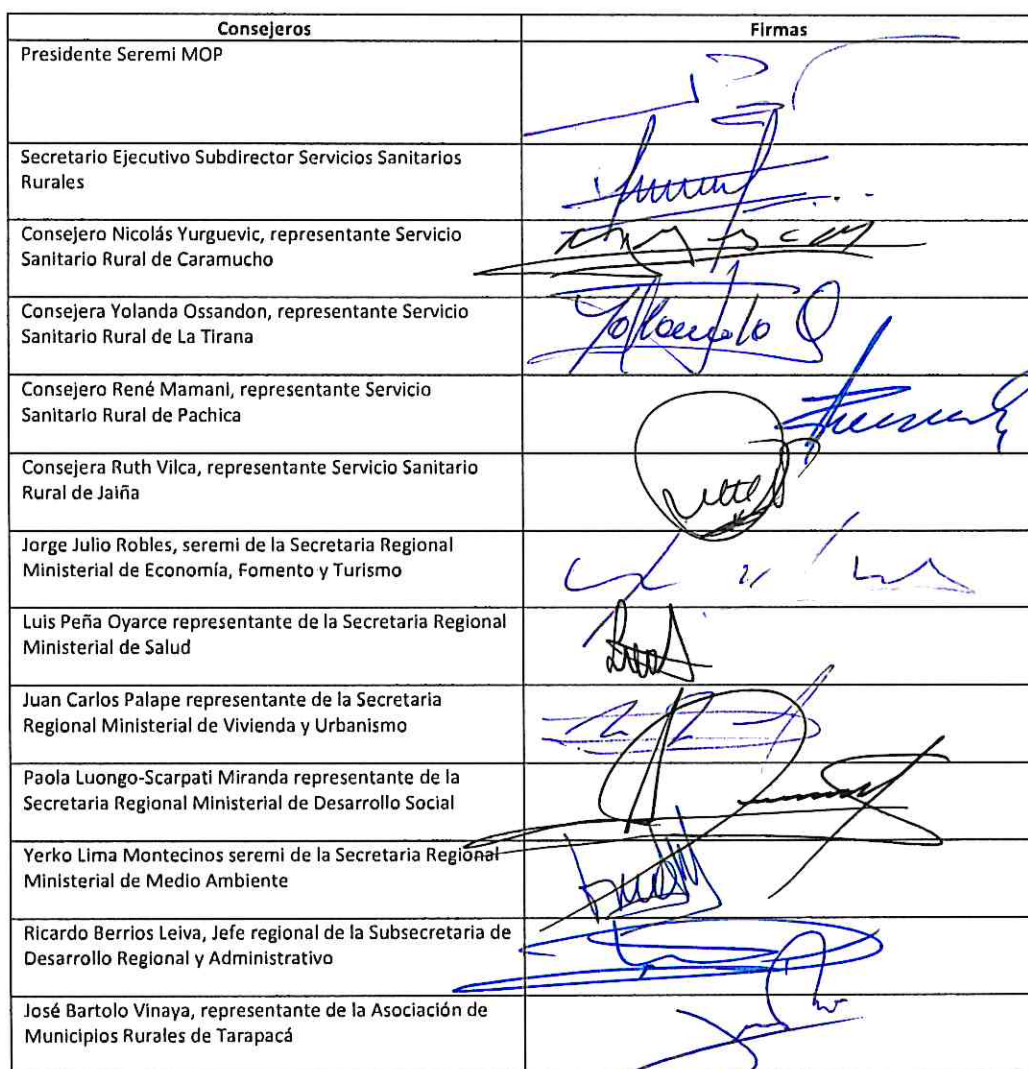 Consejeros
Firmas
Presidente Seremi MOP
Secretario Ejecutivo Subdirector Servicios Sanitarios
Rurales
Consejero Nicolás Yurguevic, representante Servicio
Sanitario Rural de Caramucho
Consejera Yolanda Ossandon, representante Servicio
Sanitario Rural de La Tirana
Yolanda O
Consejero René Mamani, representante Servicio
Sanitario Rural de Pachica
Consejera Ruth Vilca, representante Servicio Sanitario
Rural de Jaiña
Jorge Julio Robles, seremi de la Secretaria Regional
Ministerial de Economía, Fomento y Turismo
Luis Peña Oyarce representante de la Secretaria Regional
Ministerial de Salud
Juan Carlos Palape representante de la Secretaria
Regional Ministerial de Vivienda y Urbanismo
Paola Luongo-Scarpati Miranda representante de la
Secretaria Regional Ministerial de Desarrollo Social
Yerko Lima Montecinos seremi de la Secretaria Regional
Ministerial de Medio Ambiente
Ricardo Berrios Leiva, Jefe regional de la Subsecretaria de
Desarrollo Regional y Administrativo
José Bartolo Vinaya, representante de la Asociación de
Municipios Rurales de Tarapacá